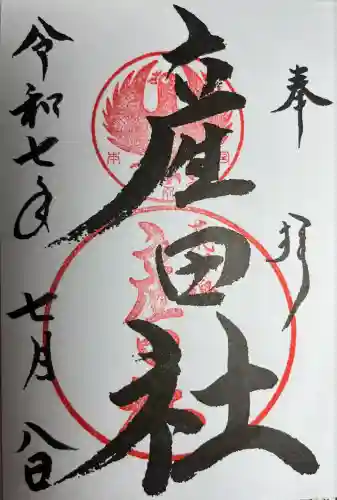 奉拝
産田社
令和七年
七月八日